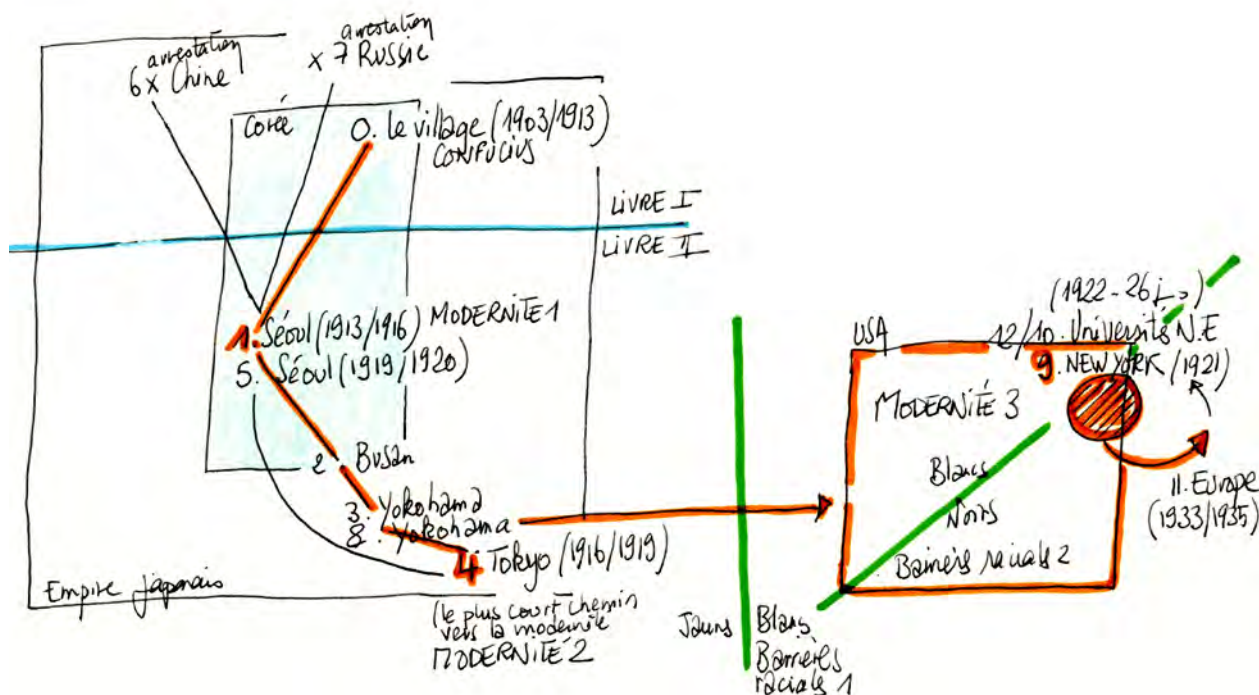 arrestation
6x Chine
arrestation
x 7 Russie
Corée
0. le village (1903/1913)
CONFUCIUS
LIVRE I
LIVRE II
1. Séoul (1913/1916) MODERNITÉ 1
5. Séoul (1919/1920)
2. Busan
3. Yokohama
8. Yokohama
4. Tokyo (1916/1919)
Empire japonais
(le plus court chemin
vers la modernité
MODERNITÉ 2
Jauns
Blancs
Barrières
raciales 1
USA
(1922-26
12/10. Université N.E
9. NEW YORK (1921)
MODERNITÉ 3
Blancs
Noirs
Barrières raciales 2
11. Europe
(1933/1935)